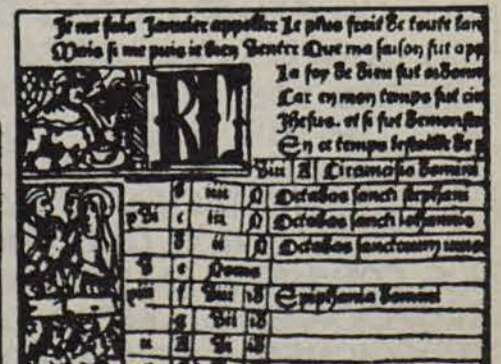 Je me fais Janvier appeller Le plus froit de toute lan
Mais si me puis ie bien venter Que ma saison fut app
La foy de dieu fut
Car en mon temps fut cir
Jhesus. et si fut demonstre
En ce temps lestoille de
KL
viii A Circuncisio domini
b iiii N Octabas sancti stephani
xvi c iii N Octabas sancti iohannis
d ii N Octabas sanctorum inno
v e None
xiii f viii id Epiphania domini
g vii id
ii A vi id